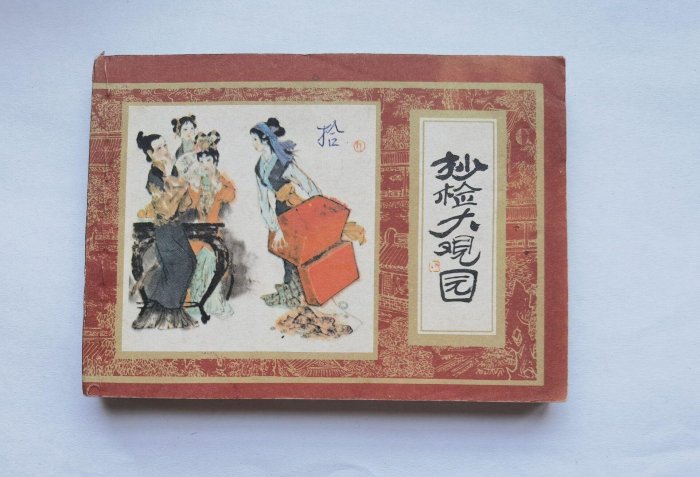 拾
抄检大观园